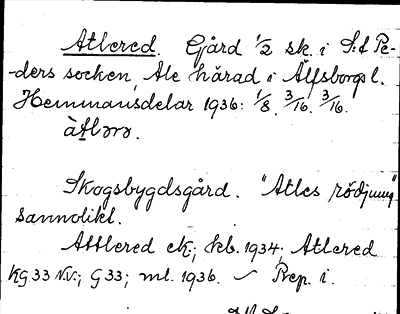 Atlered. Gård 1/2 sk. i S:t Pe-
-ders socken, Ale härad i Älfsborgs l.
Hemmansdelar 1936: 1/8. 3/16. 3/16.
àtlərə.
Skogsbygdsgård. "Atles rödjning"
sannolikl.
Attlered ek; kb. 1934; Atlered
KG 33 N.V.; G 33; ml. 1936. ~ Prep. i.